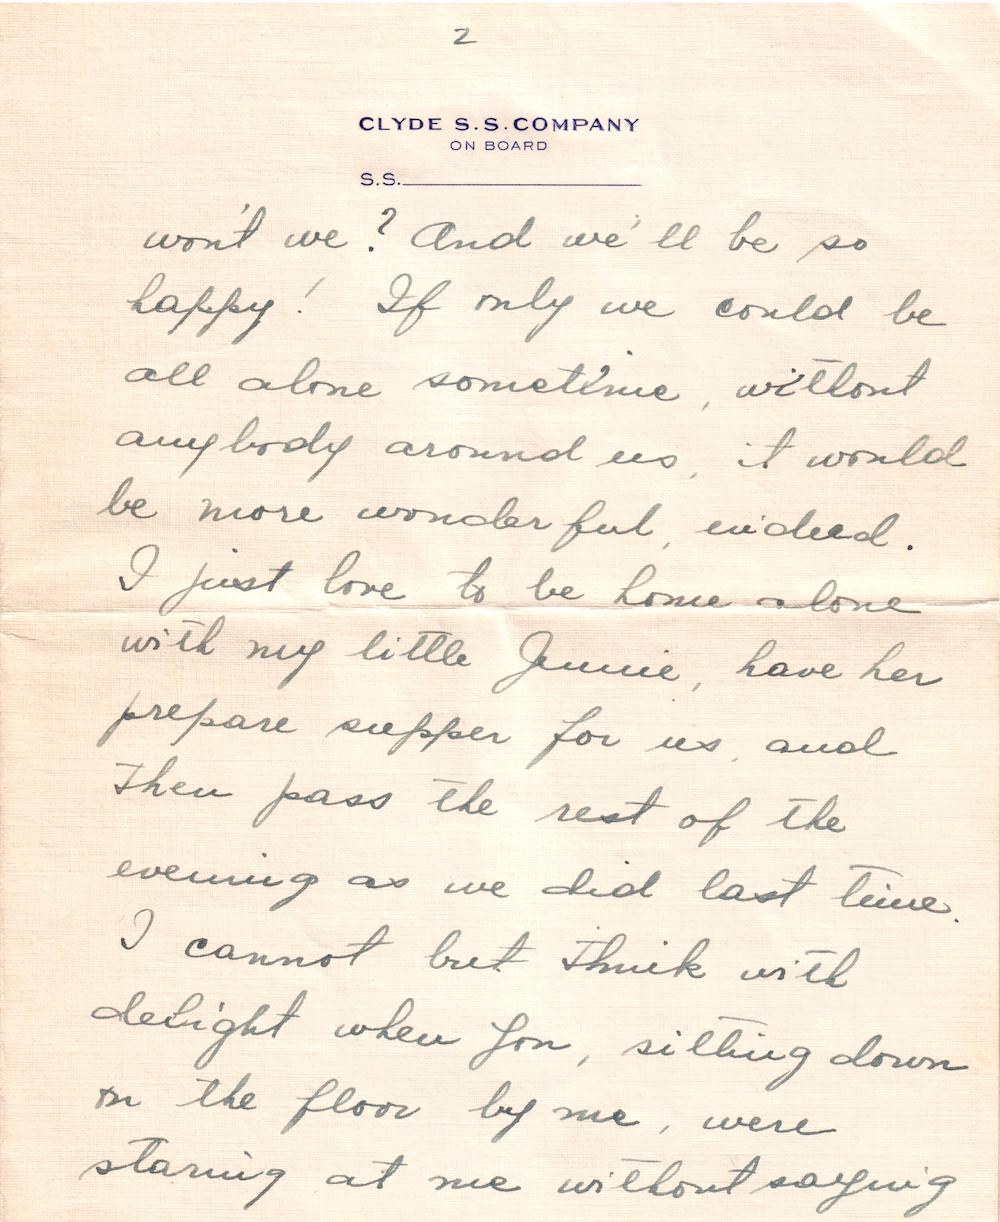 2
CLYDE S.S. COMPANY
ON BOARD
S.S.
won't we? And we'll be so
happy! If only we could be
all alone sometime, without
anybody around us, it would
be more wonderful, indeed.
I just love to be home alone
with my little Jennie, have her
prepare supper for us, and
then pass the rest of the
evening as we did last time.
I cannot but think with
delight when you, sitting down
on the floor by me, were
staring at me without saying